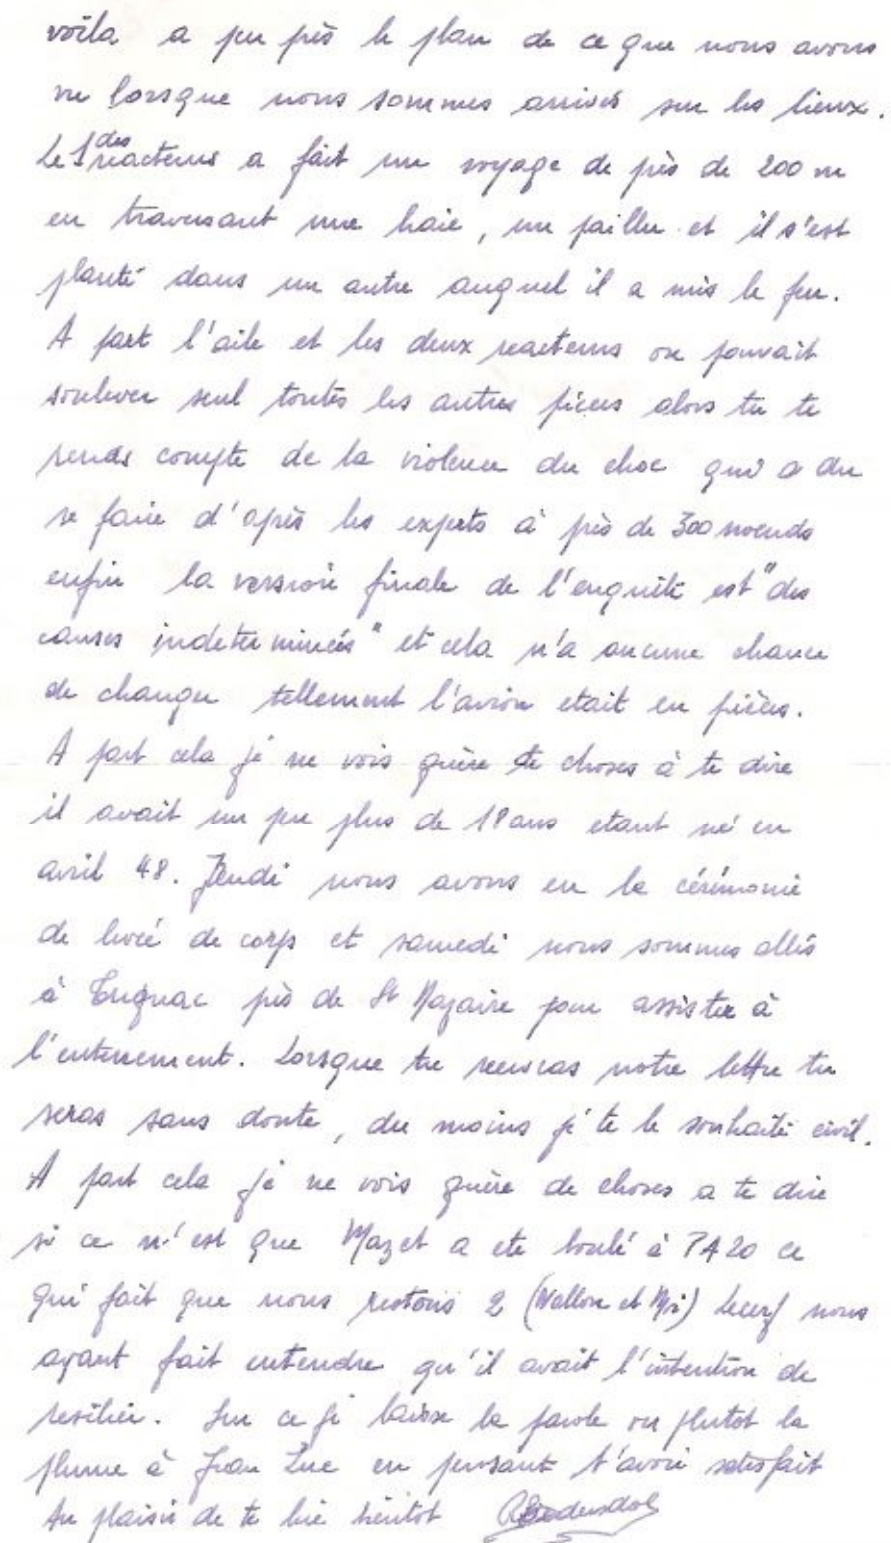 voila a peu près le plan de ce que nous avons
vu lorsque nous sommes arrivés sur les lieux.
Le 1 des reacteurs a fait un voyage de près de 200 m
en traversant une haie, un pailler et il s'est
planté dans un autre auquel il a mis le feu.
A part l'aile et les deux reacteurs on pouvait
soulever seul toutes les autres pièces alors tu te
rends compte de la violence du choc qui a du
se faire d'après les experts à près de 300 noeuds
enfin la version finale de l'enquête est "des
causes indeterminées" et cela n'a aucune chance
de changer tellement l'avion etait en pièces.
A part cela je ne vois guère de choses à te dire
il avait un peu plus de 18 ans etant né en
avril 48. Jeudi nous avons eu la cérémonie
de levée de corps et samedi nous sommes allés
à Trignac près de St Nazaire pour assister à
l'enterrement. Lorsque tu recevras notre lettre tu
seras sans doute, du moins je te le souhaite civil.
A part cela je ne vois guère de choses a te dire
si ce n'est que Mazet a ete boulé à PA20 ce
qui fait que nous restons 2 (Wallon et Moi) Lecerf nous
ayant fait entendre qu'il avait l'intention de
resilier. Sur ce je laisse la parole ou plutot la
plume à Jean Luc en pensant t'avoir satisfait
Au plaisir de te lire bientot